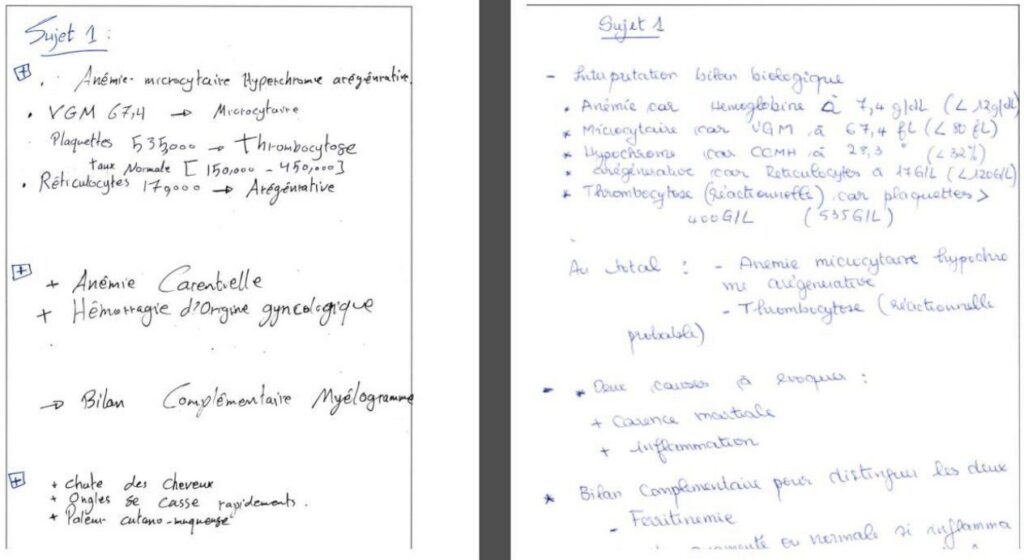 Sujet 1 :
. Anémie microcytaire Hyperchrome arégénrative.
. VGM 67,4 → Microcytaire
Plaquettes 535,000 → Thrombocytose
taux Normale [ 150,000 - 450,000 ]
. Réticulocytes 17,000 → Arégénrative
+ Anémie Carentielle
+ Hémorragie d'Origine gyncologique
→ Bilan Complémentaire Myélogramme
+ chute des cheveux
+ Ongles se casse rapidements.
+ Pâleur cutano-muqueuse
Sujet 1
- Interputation bilan biologique
. Anémie car Hemoglobine à 7,4 g/dL (< 12g/dL)
* Microcytaire car VGM à 67,4 fL (< 80 fL)
* Hypochrome car CCMH à 28,3 (< 32%)
* arégénérative car Reticulocytes à 17G/L (< 120G/L)
* Thrombocytose (réactionnelle) car plaquettes >
400G/L (535G/L)
Au total : - Anemie microcytaire hypochro
me arégénerative
- Thrombocytose (réactionnelle
probable)
- * Deux causes à evoquer :
+ Carence martiale
+ inflammation
* Bilan complementaire pour distinguer les deux
- Ferritinemie
augmenté ou normale si inflamma